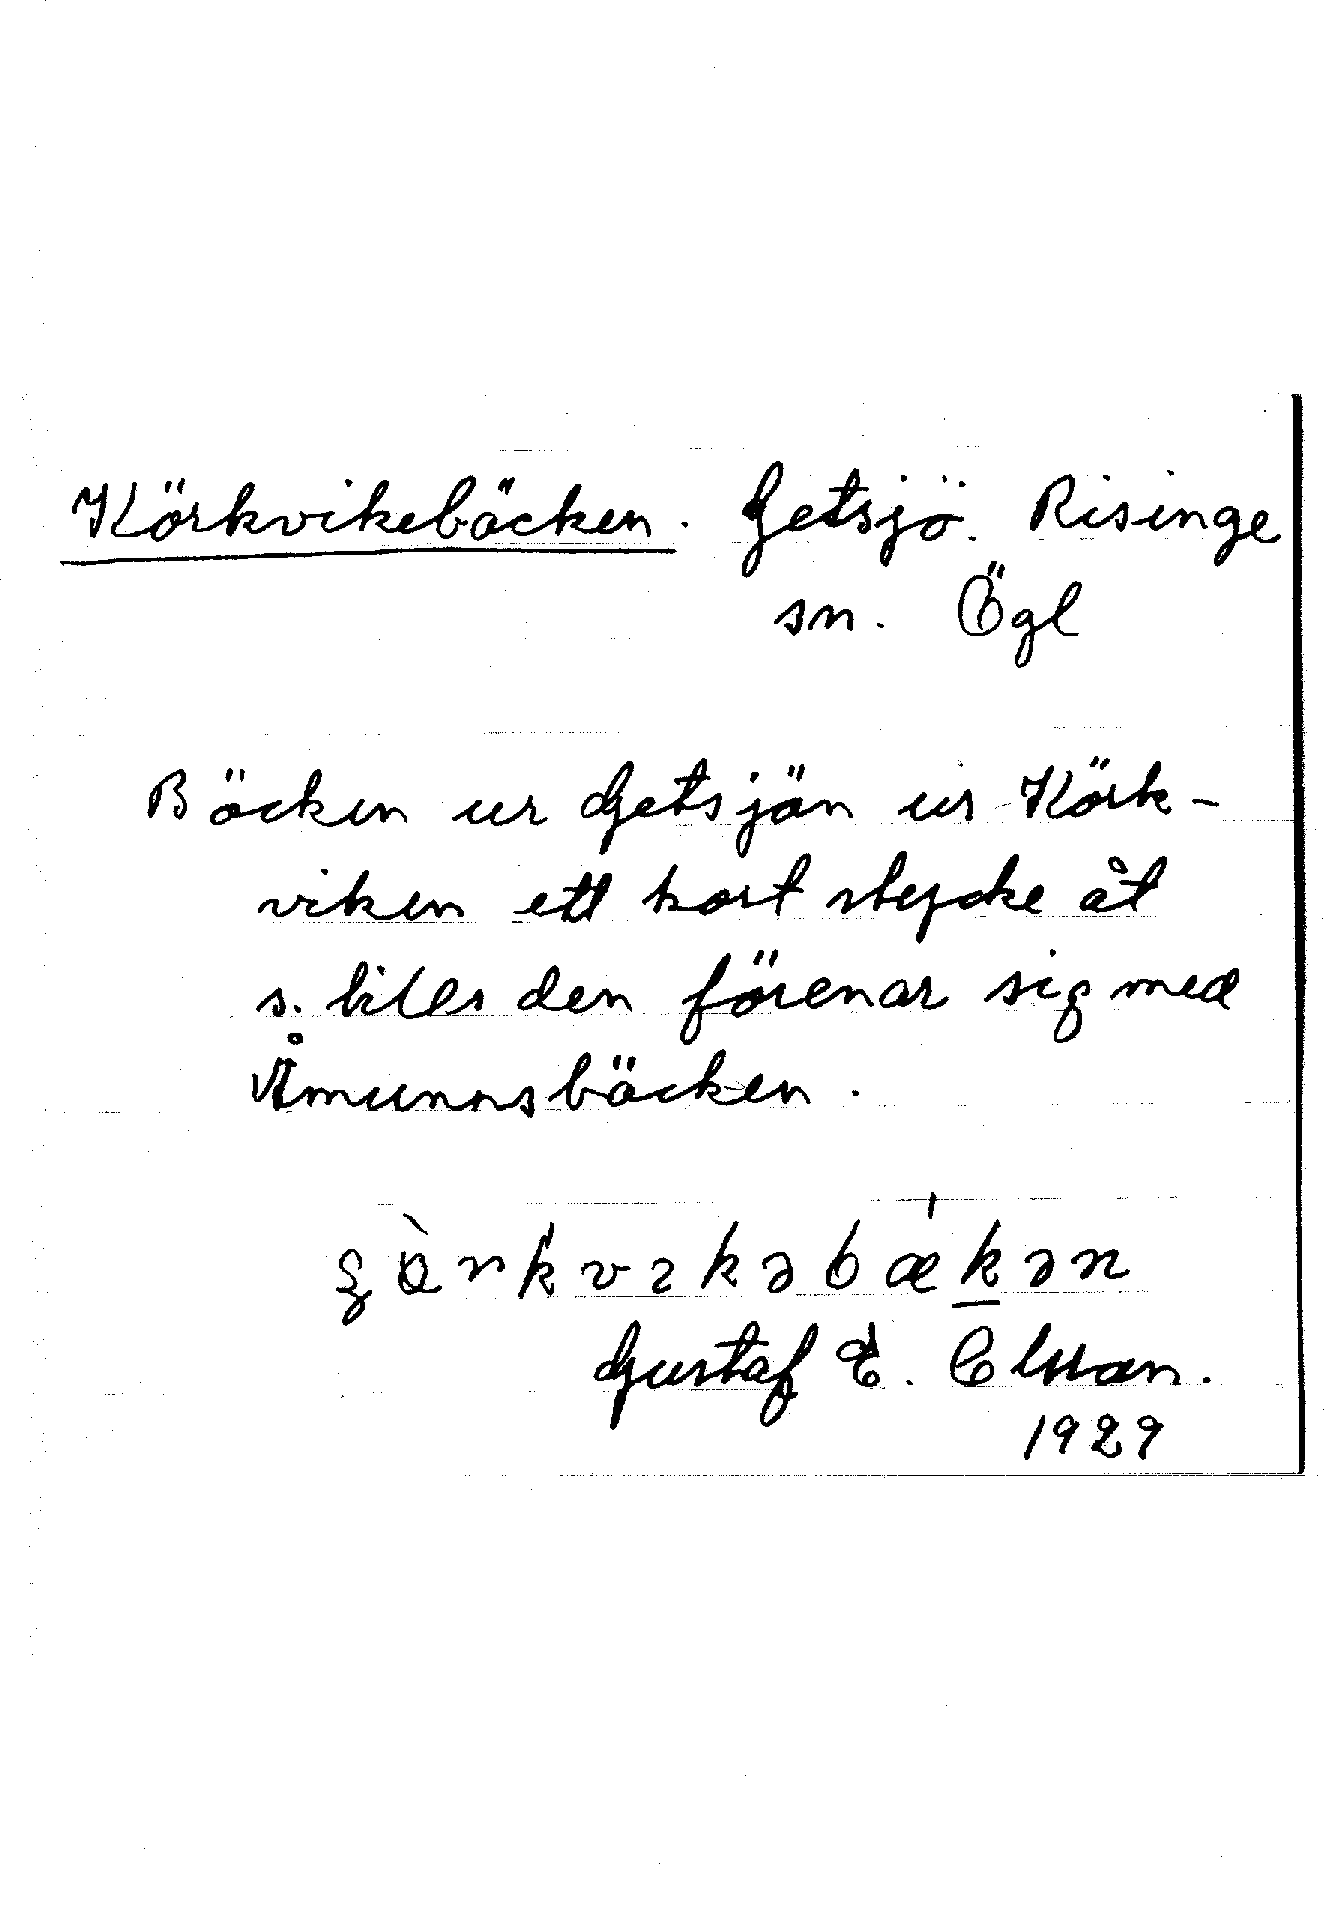 Körkvikebäcken. Getsjö. Risinge
sn. Ögl
Bäcken ur Getsjön ur Körk-
viken ett kort stycke åt
s. tills den förenar sig med
Åmunnsbäcken.
Gustaf E. Elsson.
1929